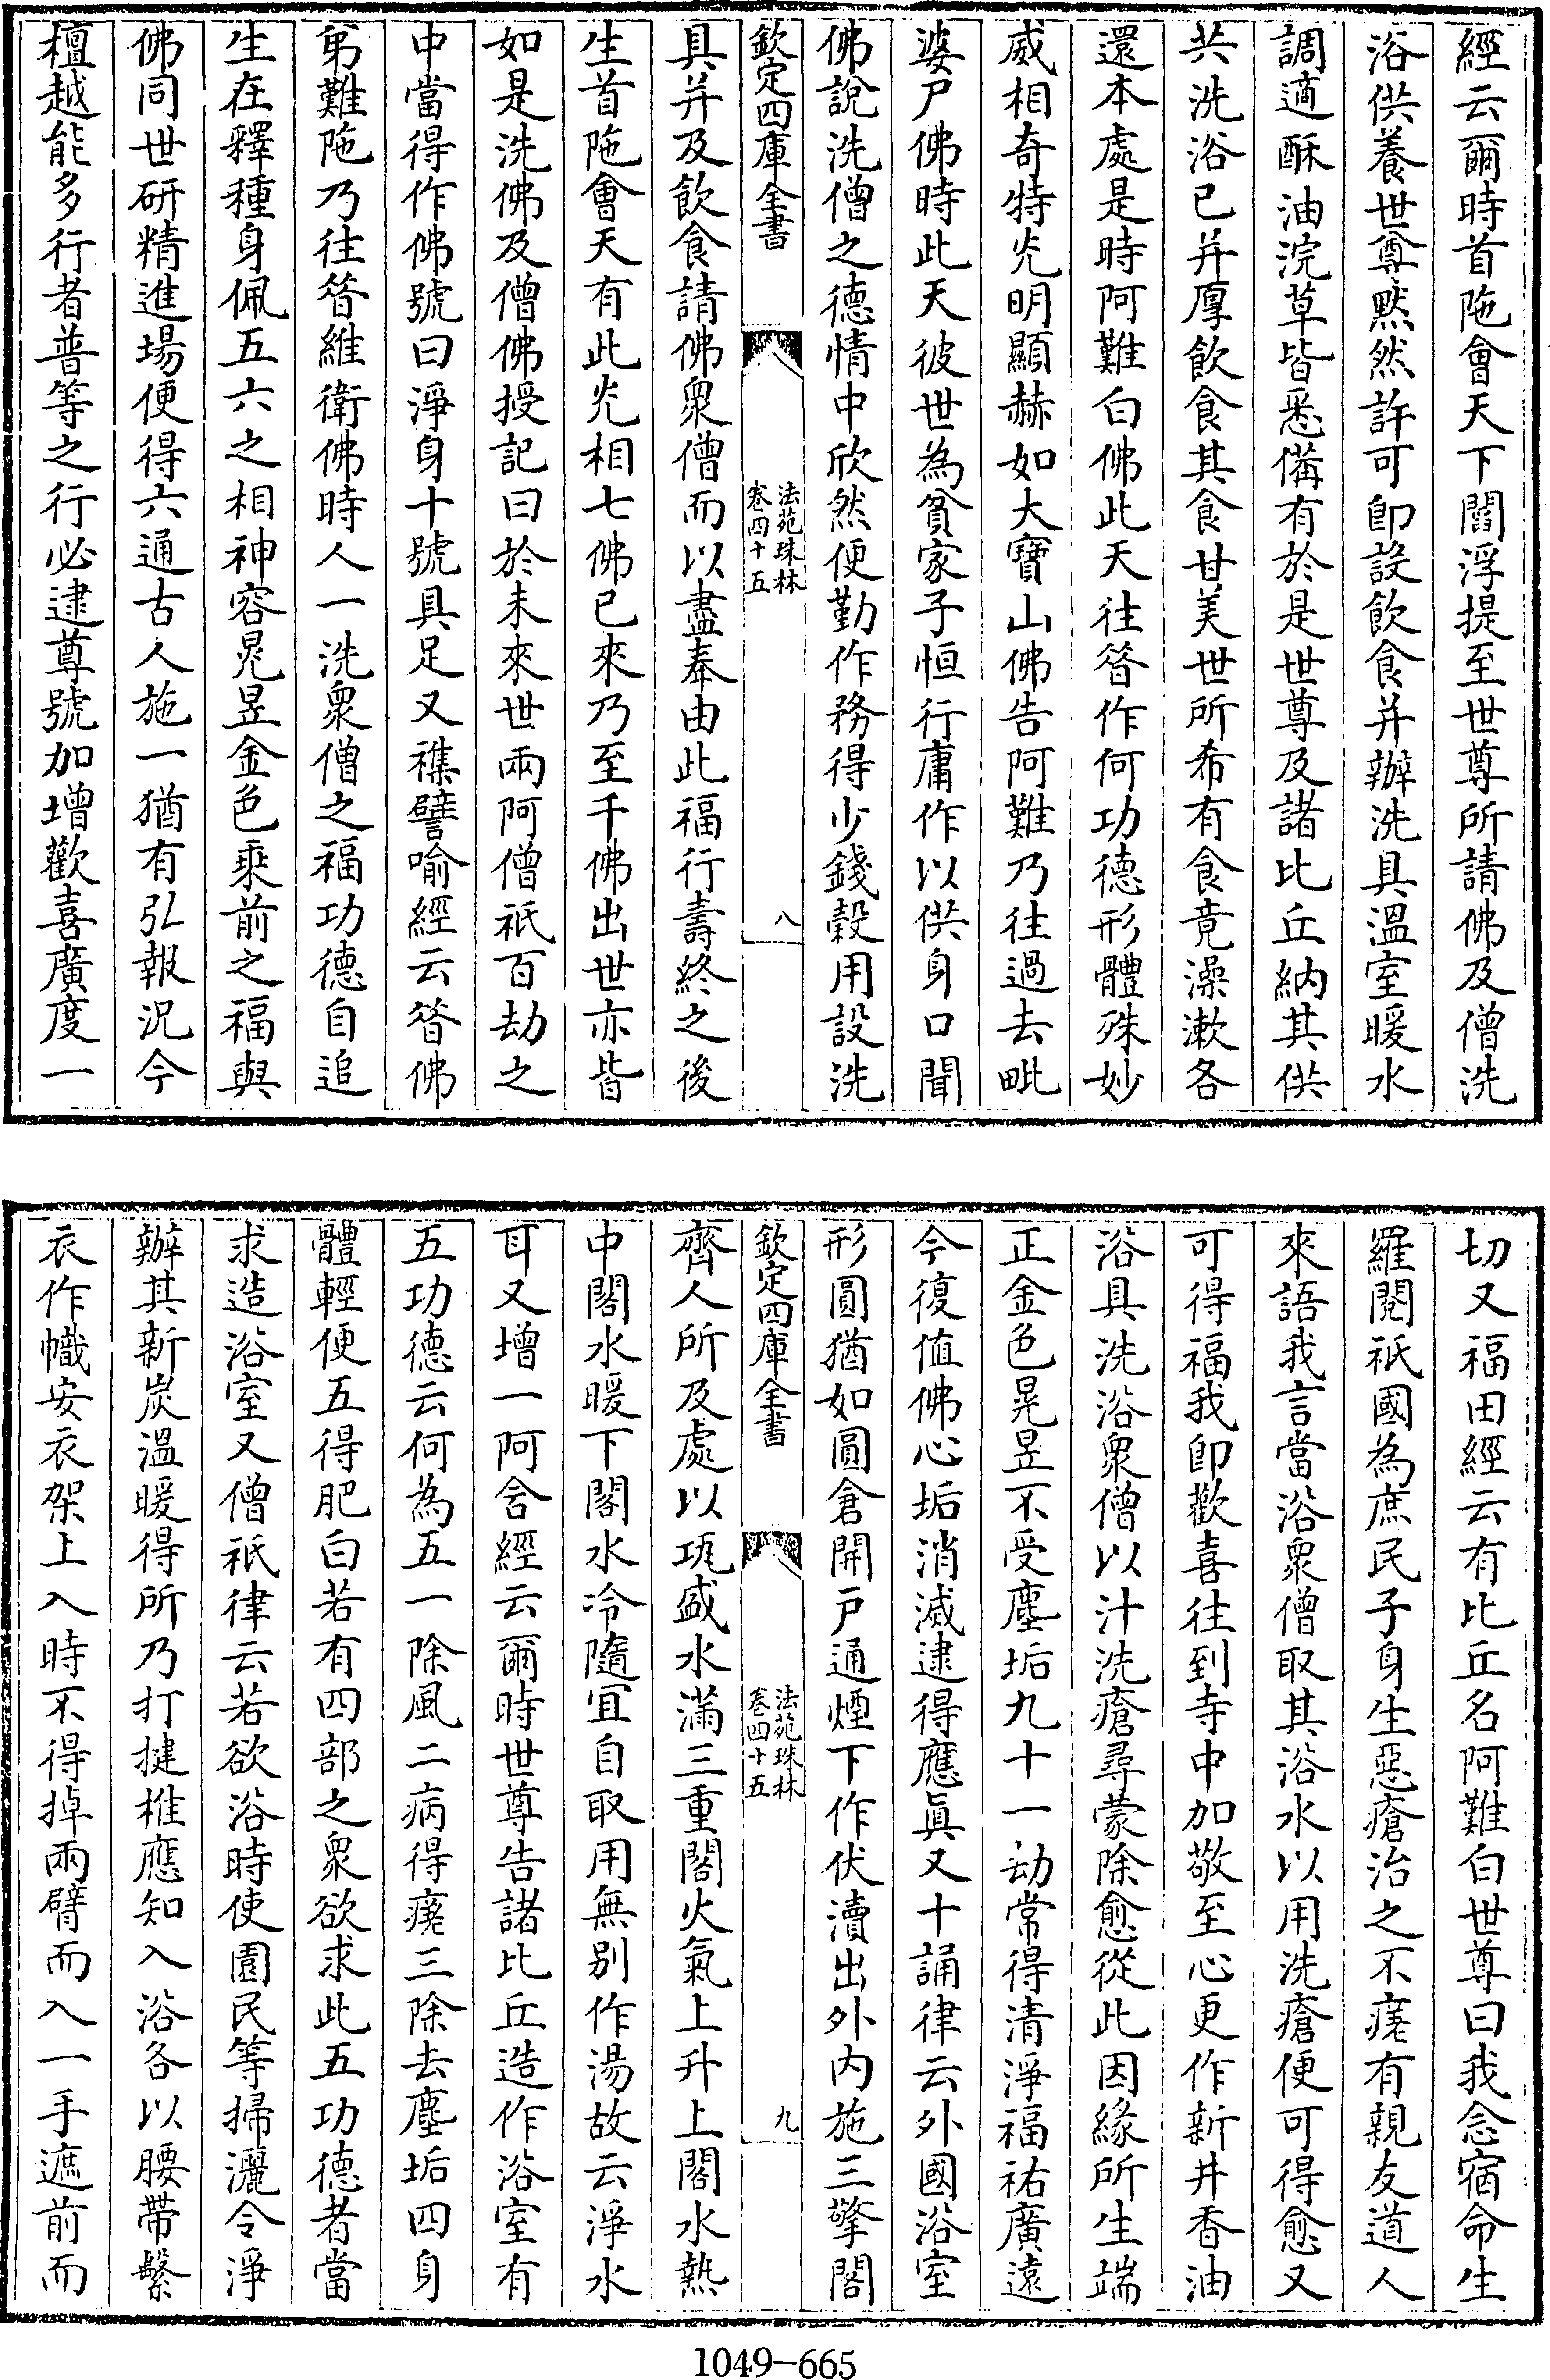 經云爾時首陁會天下閻浮提至世尊所請佛及僧洗
浴供養世尊黙然許可即設飲食并辦洗具溫室暖水
調適酥油浣草皆悉備有於是世尊及諸比丘納其供
共洗浴已并厚飲食其食甘美世所希有食竟澡漱各
還本處是時阿難白佛此天往昝作何功德形體殊妙
威相奇特光明顯赫如大寶山佛告阿難乃往過去毗
婆尸佛時此天彼世為貧家子恒行庸作以供身口聞
佛說洗僧之德情中欣然便勤作務得少錢穀用設洗
欽定四庫全書
法苑珠林
卷四十五
八
具并及飲食請佛衆僧而以盡奉由此福行壽終之後
生首陁會天有此光相七佛已來乃至千佛出世亦皆
如是洗佛及僧佛授記曰於未來世兩阿僧祇百劫之
中當得作佛號曰淨身十號具足又襍譬喻經云昝佛
弟難陁乃往昝維衛佛時人一洗衆僧之福功德自追
生在釋種身佩五六之相神容晃昱金色乘前之福與
佛同世研精進場便得六通古人施一猶有弘報況今
檀越能多行者普等之行必逮尊號加增歡喜廣度一
切又福田經云有比丘名阿難白世尊曰我念宿命生
羅閱祇國為庶民子身生惡瘡治之不瘥有親友道人
來語我言當浴衆僧取其浴水以用洗瘡便可得愈又
可得福我即歡喜往到寺中加敬至心更作新井香油
浴具洗浴衆僧以汁洗瘡尋蒙除愈從此因緣所生端
正金色晃昱不受塵垢九十一劫常得清淨福祐廣遠
今復值佛心垢消滅逮得應眞又十誦律云外國浴室
形圓猶如圓倉開户通煙下作伏瀆出外内施三擎閣
欽定四庫全書
法苑珠林
卷四十五
九
齊人所及處以瓨盛水滿三重閣火氣上升上閣水熱
中閣水暖下閣水冷隨宜自取用無别作湯故云淨水
耳又增一阿含經云爾時世尊告諸比丘造作浴室有
五功德云何為五一除風二病得瘥三除去塵垢四身
體輕便五得肥白若有四部之衆欲求此五功德者當
求造浴室又僧祇律云若欲浴時使園民等掃灑令淨
辦其新炭溫暖得所乃打揵椎應知入浴各以腰帶繫
衣作幟安衣架上入時不得掉兩臂而入一手遮前而
1049-665